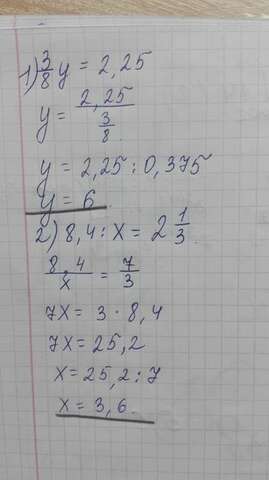 1) 3/8 y = 2,25
y = 2,25 / 3/8
y = 2,25 : 0,375
y = 6
2) 8,4 : x = 2 1/3
8,4/x = 7/3
7x = 3 · 8,4
7x = 25,2
x = 25,2 : 7
x = 3,6.